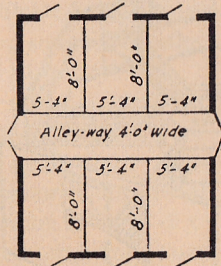 8'-0" 8'-0"
5-4" 5'-4" 5-4"
Alley-way 4'-0" wide
5'-4" 5'-4" 5'-4"
8'-0" 8'-0"